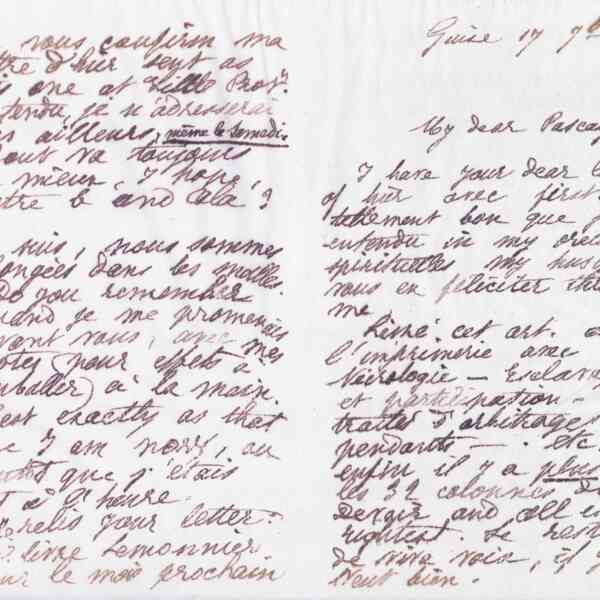 vous confirm ma
d'hier sent as
one at Lille Prov.
entendu, je n'adresserai
ailleurs, même le samedi.
tout va toujours
mieux, I hope,
b and cela ?
suis, nous sommes
plongées dans les malles.
Do you remember
quand je me promenais
devant vous, avec mes
notes (pour effets à
emballer) à la main.
exactly as that
I am now, ou
que j'étais
à l'heure.
relis your letter.
livre Lemonnier
le mois prochain
Guise 17 7b
My dear Pasca
I have your dear
of hier avec first
tellement bon que
entendu in my
spirituelles my
vous en féliciter
me
Livré cet art.
l'imprimerie avec
Nécrologie - Esclava
et participation -
traités d'arbitrage
pendants - . etc.
enfin il y a plus
les 32 colonnes
Devoir and all
right. Le rest
de viva voix, il
veut bien.